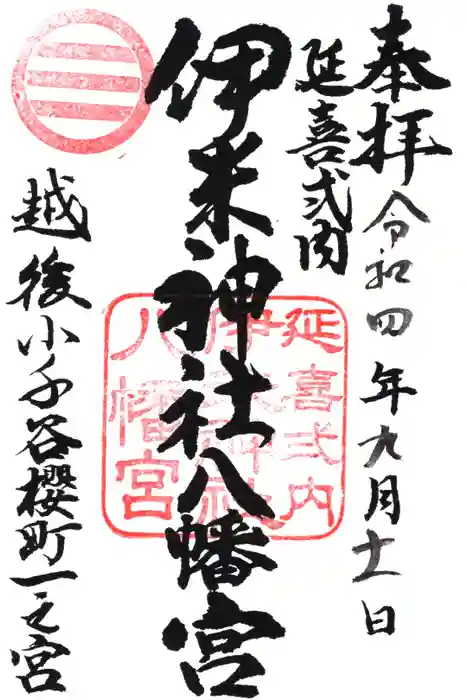 奉拝 令和四年九月十一日
延喜式内
伊米神社八幡宮
越後小千谷櫻町一之宮
延喜式内
伊米神社
八幡宮